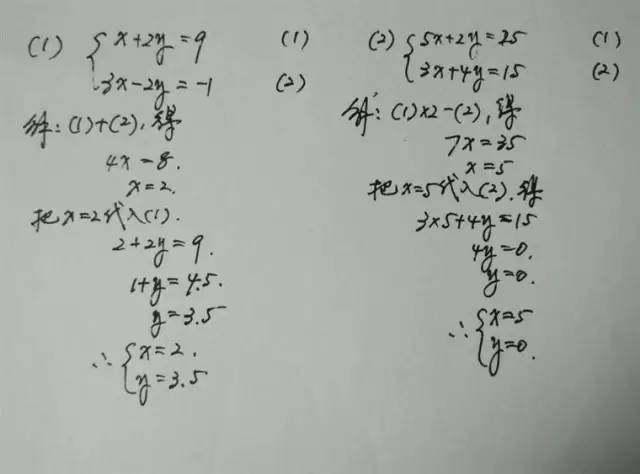 (1) { x+2y=9 (1)
3x-2y=-1 (2)
解:(1)+(2),得
4x=8.
x=2.
把x=2代入(1).
2+2y=9.
1+y=4.5.
y=3.5
∴ { x=2.
y=3.5
(2) { 5x+2y=25 (1)
3x+4y=15 (2)
解:(1)×2-(2),得
7x=35
x=5
把x=5代入(2).得
3×5+4y=15
4y=0.
y=0.
∴ { x=5
y=0.